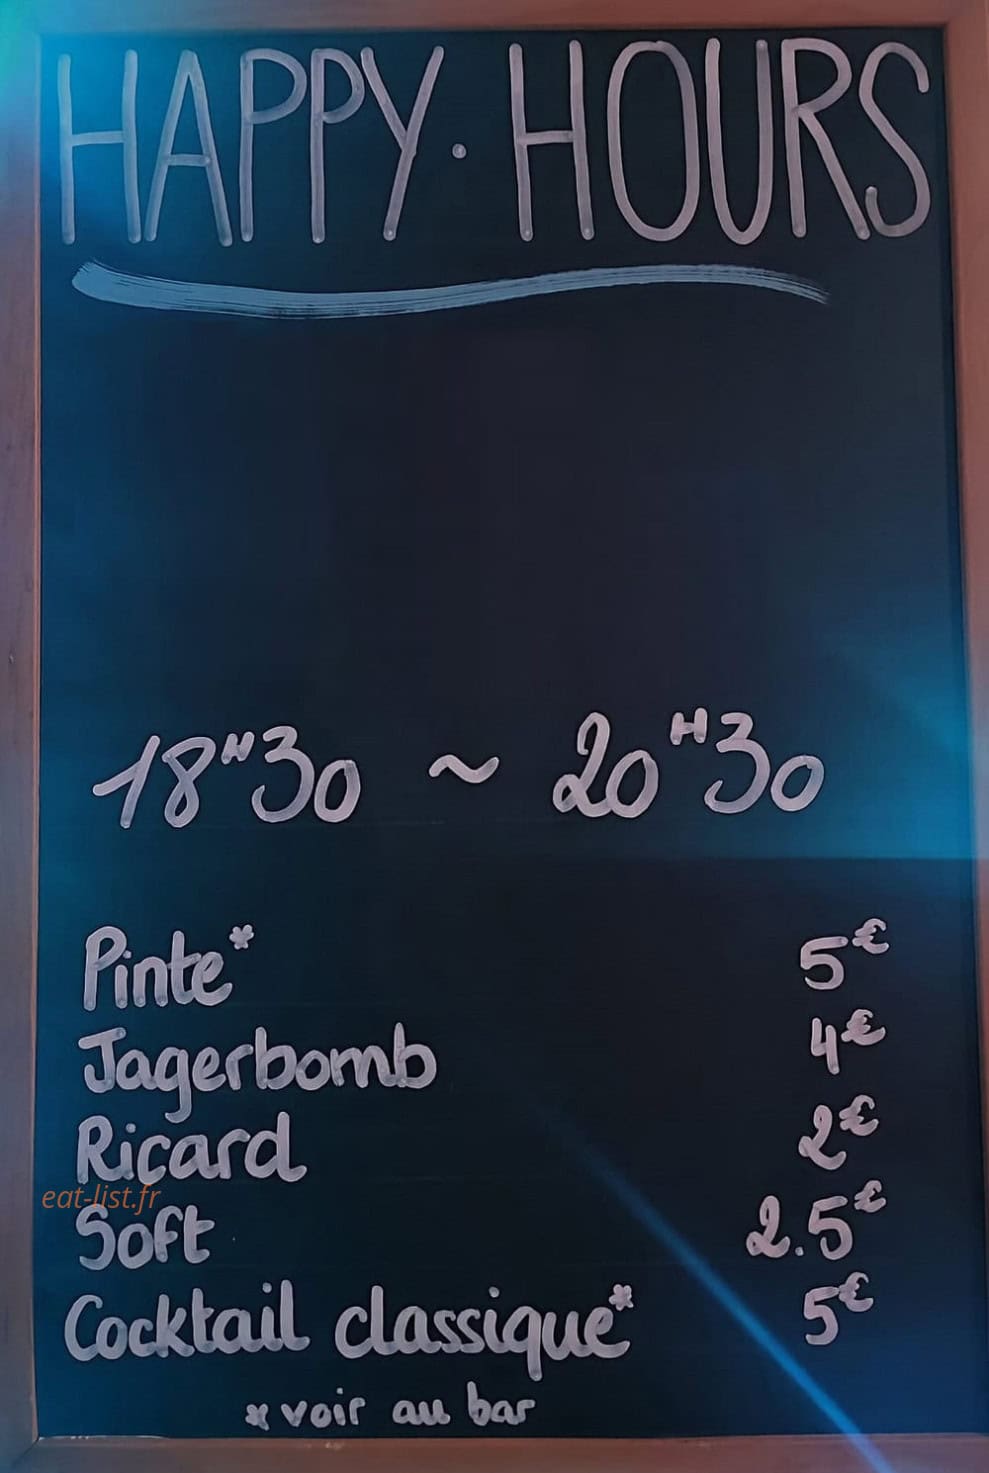 HAPPY · HOURS
18H30 ~ 20H30
Pinte* 5€
Jagerbomb 4€
Ricard 2€
eat-list.fr
Soft 2.5€
Cocktail classique* 5€
* voir au bar